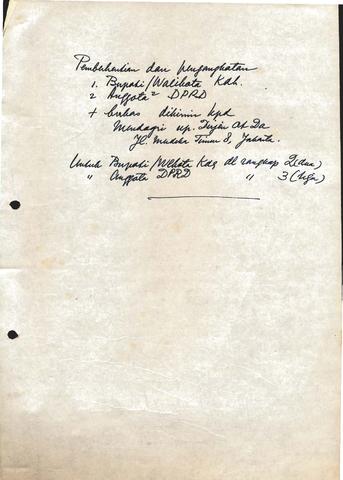 Pemberhentian dan pengangkatan
1. Bupati/Walikota Kdh.
2 Anggota² DPRD
+ berkas dikirim kpd
Mendagri up. Dirjen Ot Da
Jl. Medeka Timur 8, Jakarta.
Untuk Bupati/Wlkota Kdh dl rangkap 2 (dua)
" Anggota DPRD " 3 (tiga)